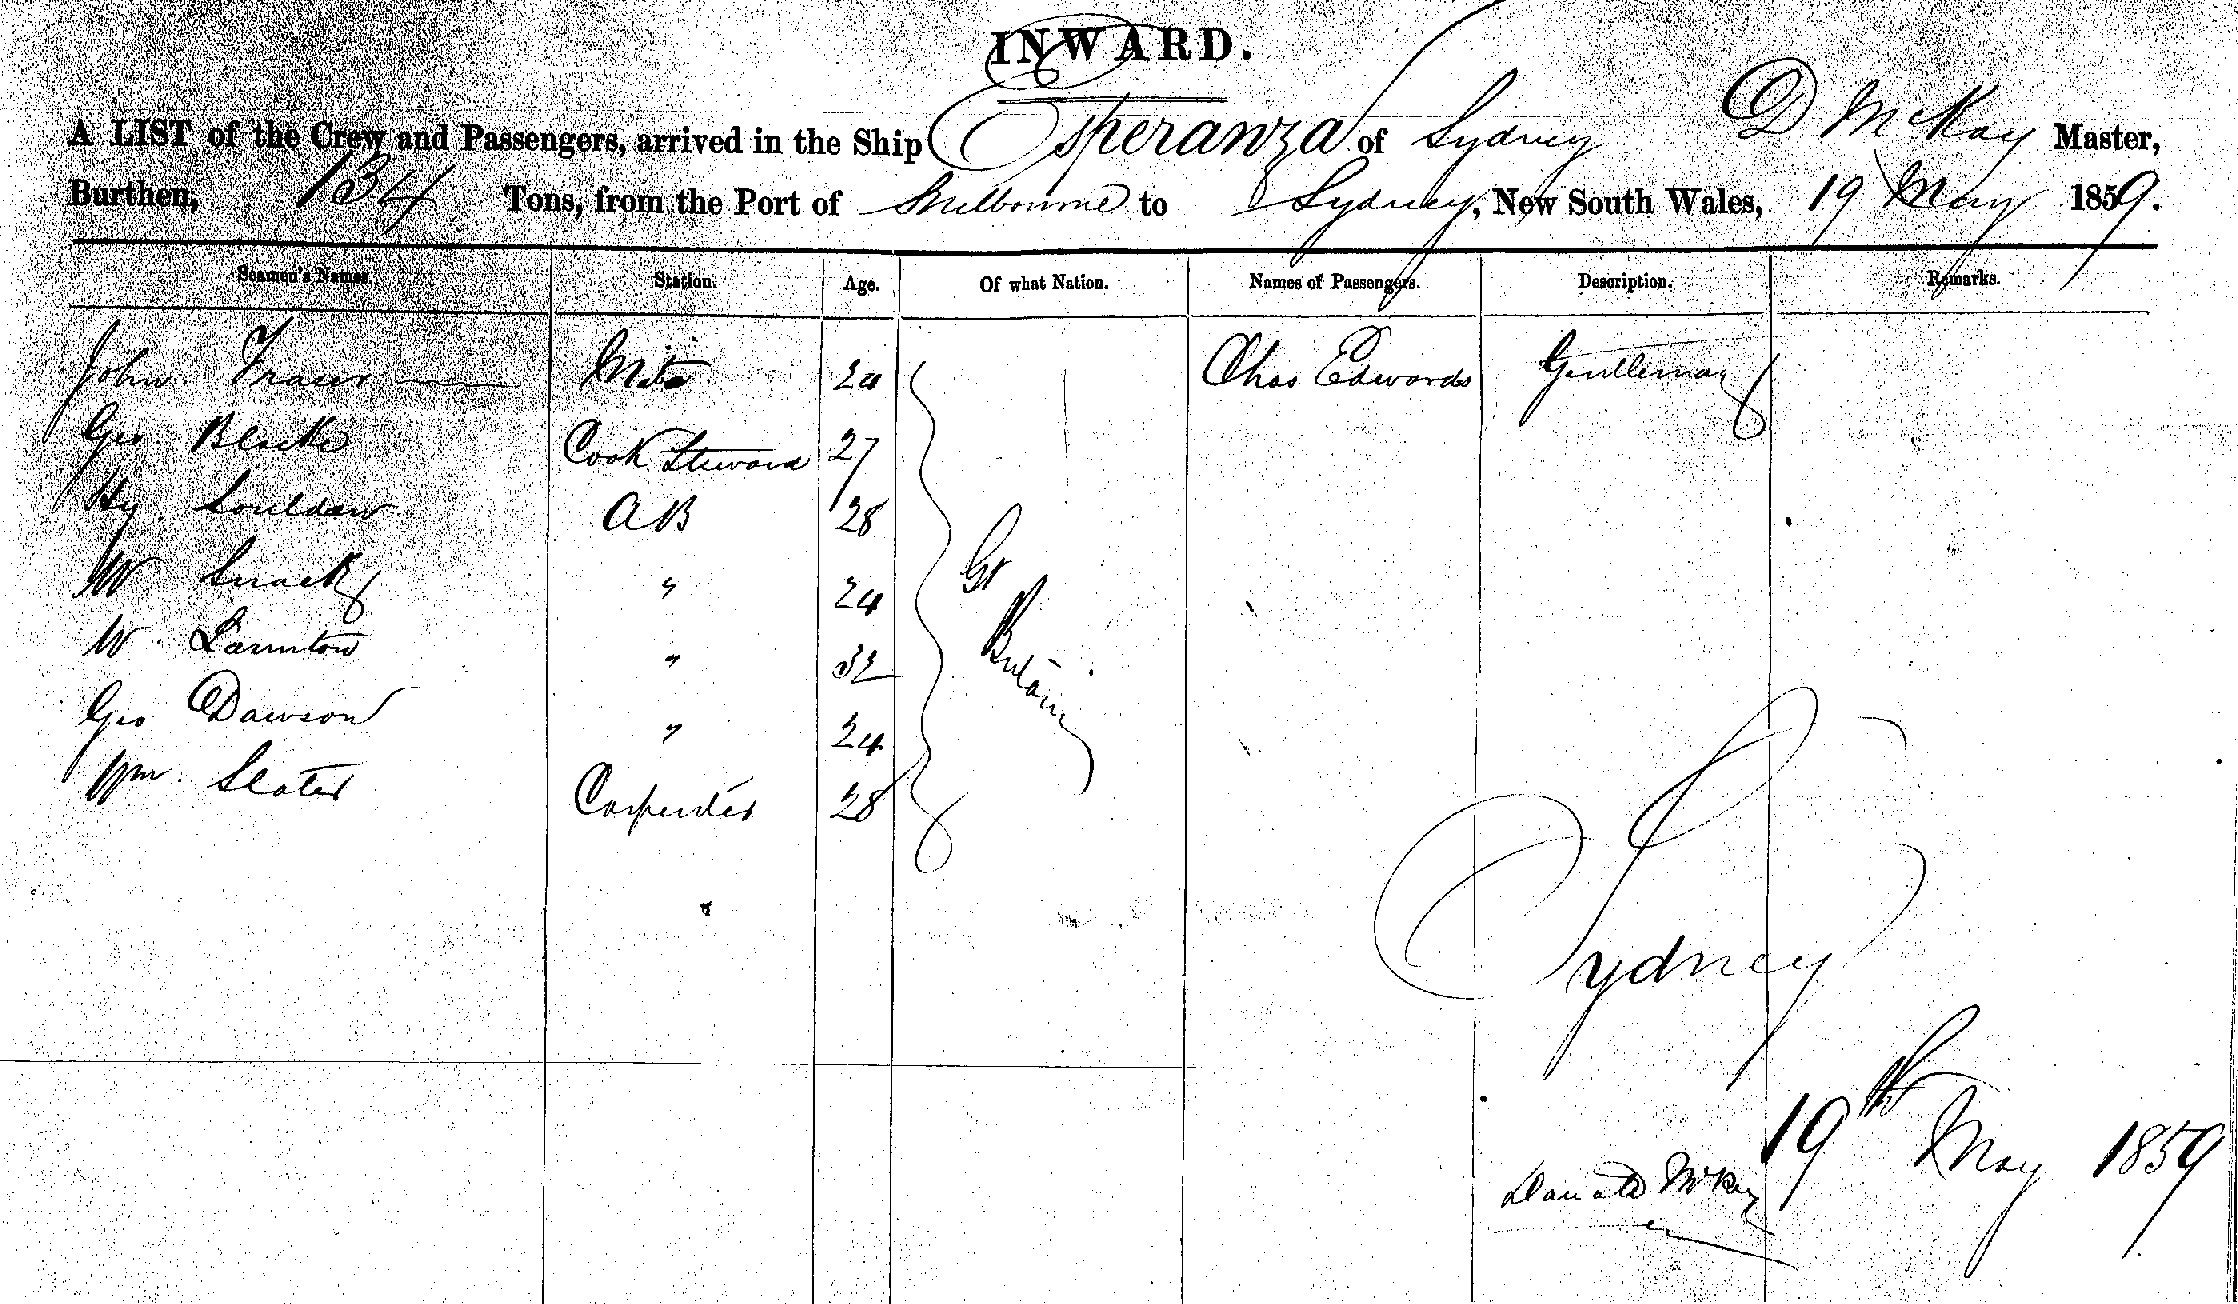 INWARD.
A LIST of the Crew and Passengers, arrived in the Ship Esperanza of Sydney D McKay Master,
Burthen, 134 Tons, from the Port of Melbourne to Sydney, New South Wales, 19 May 1859.
Seamen's Names. Station. Age. Of what Nation. Names of Passengers. Description. Remarks.
John Mate 24 Chas Edwards Gentleman
Geo Cook Steward 27
Hy AB 28
W " 24 Gt
W " 32 Britain
Geo Dawson " 24
Wm Slater Carpenter 28
Sydney
19th May 1859
Donald McKay